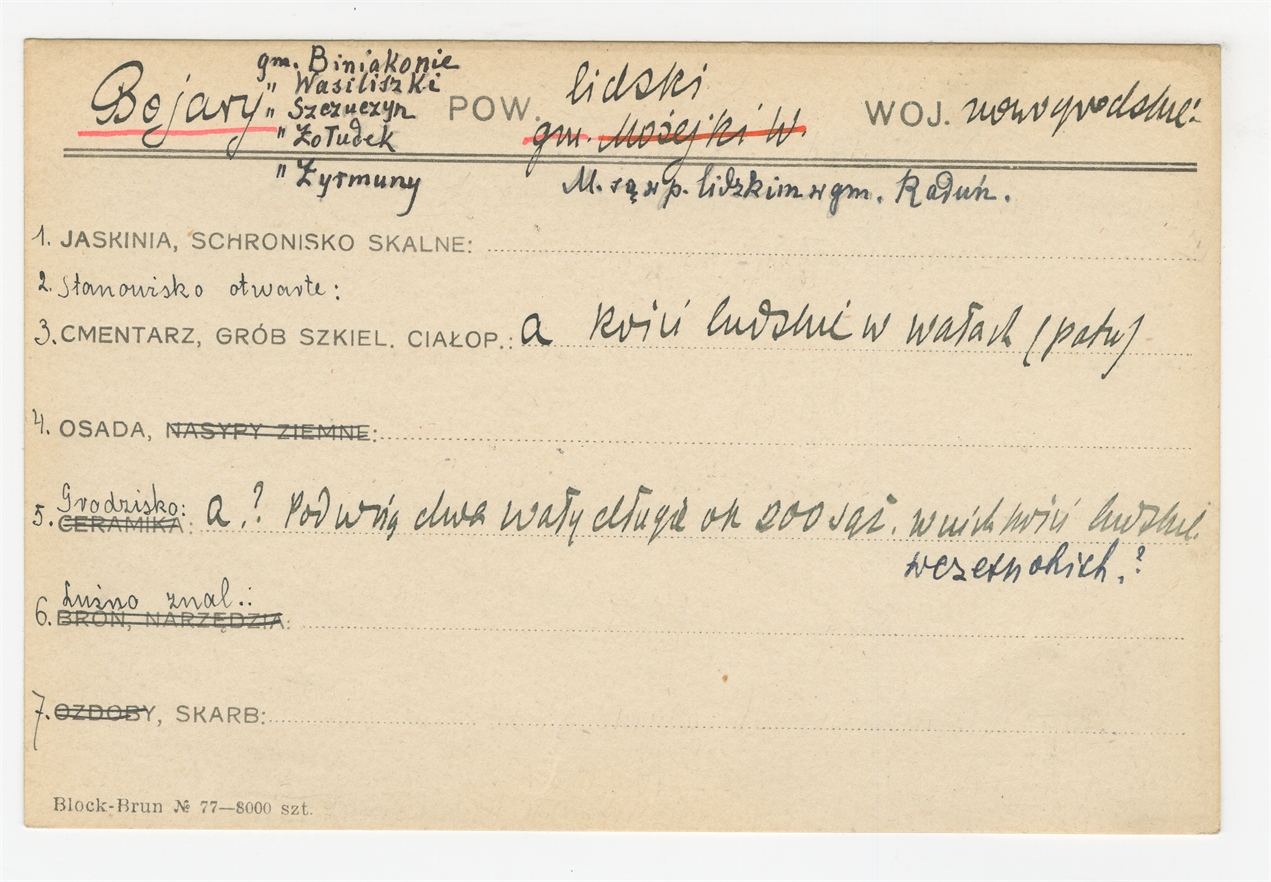 Bojary gm. Biniakonie POW. lidski WOJ. nowogrodzkie
" Wasiliszki
" Szczuczyn
" Żołudek gm. Możejki W.
" Żyrmuny M. są w p. lidzkim w gm. Raduń.
1. JASKINIA, SCHRONISKO SKALNE:
2. Stanowisko otwarte:
3. CMENTARZ, GRÓB SZKIEL. CIAŁOP.: a kości ludzkie w wałach
4. OSADA, NASYPY ZIEMNE:
Grodzisko:
5. CERAMIKA: a.? Pod wsią dwa wały długie ok 200 sąż. w nich kości ludzkie.
Luźno znal.:
6. BROŃ, NARZĘDZIA:
7. OZDOBY, SKARB:
Block-Brun № 77—8000 szt.